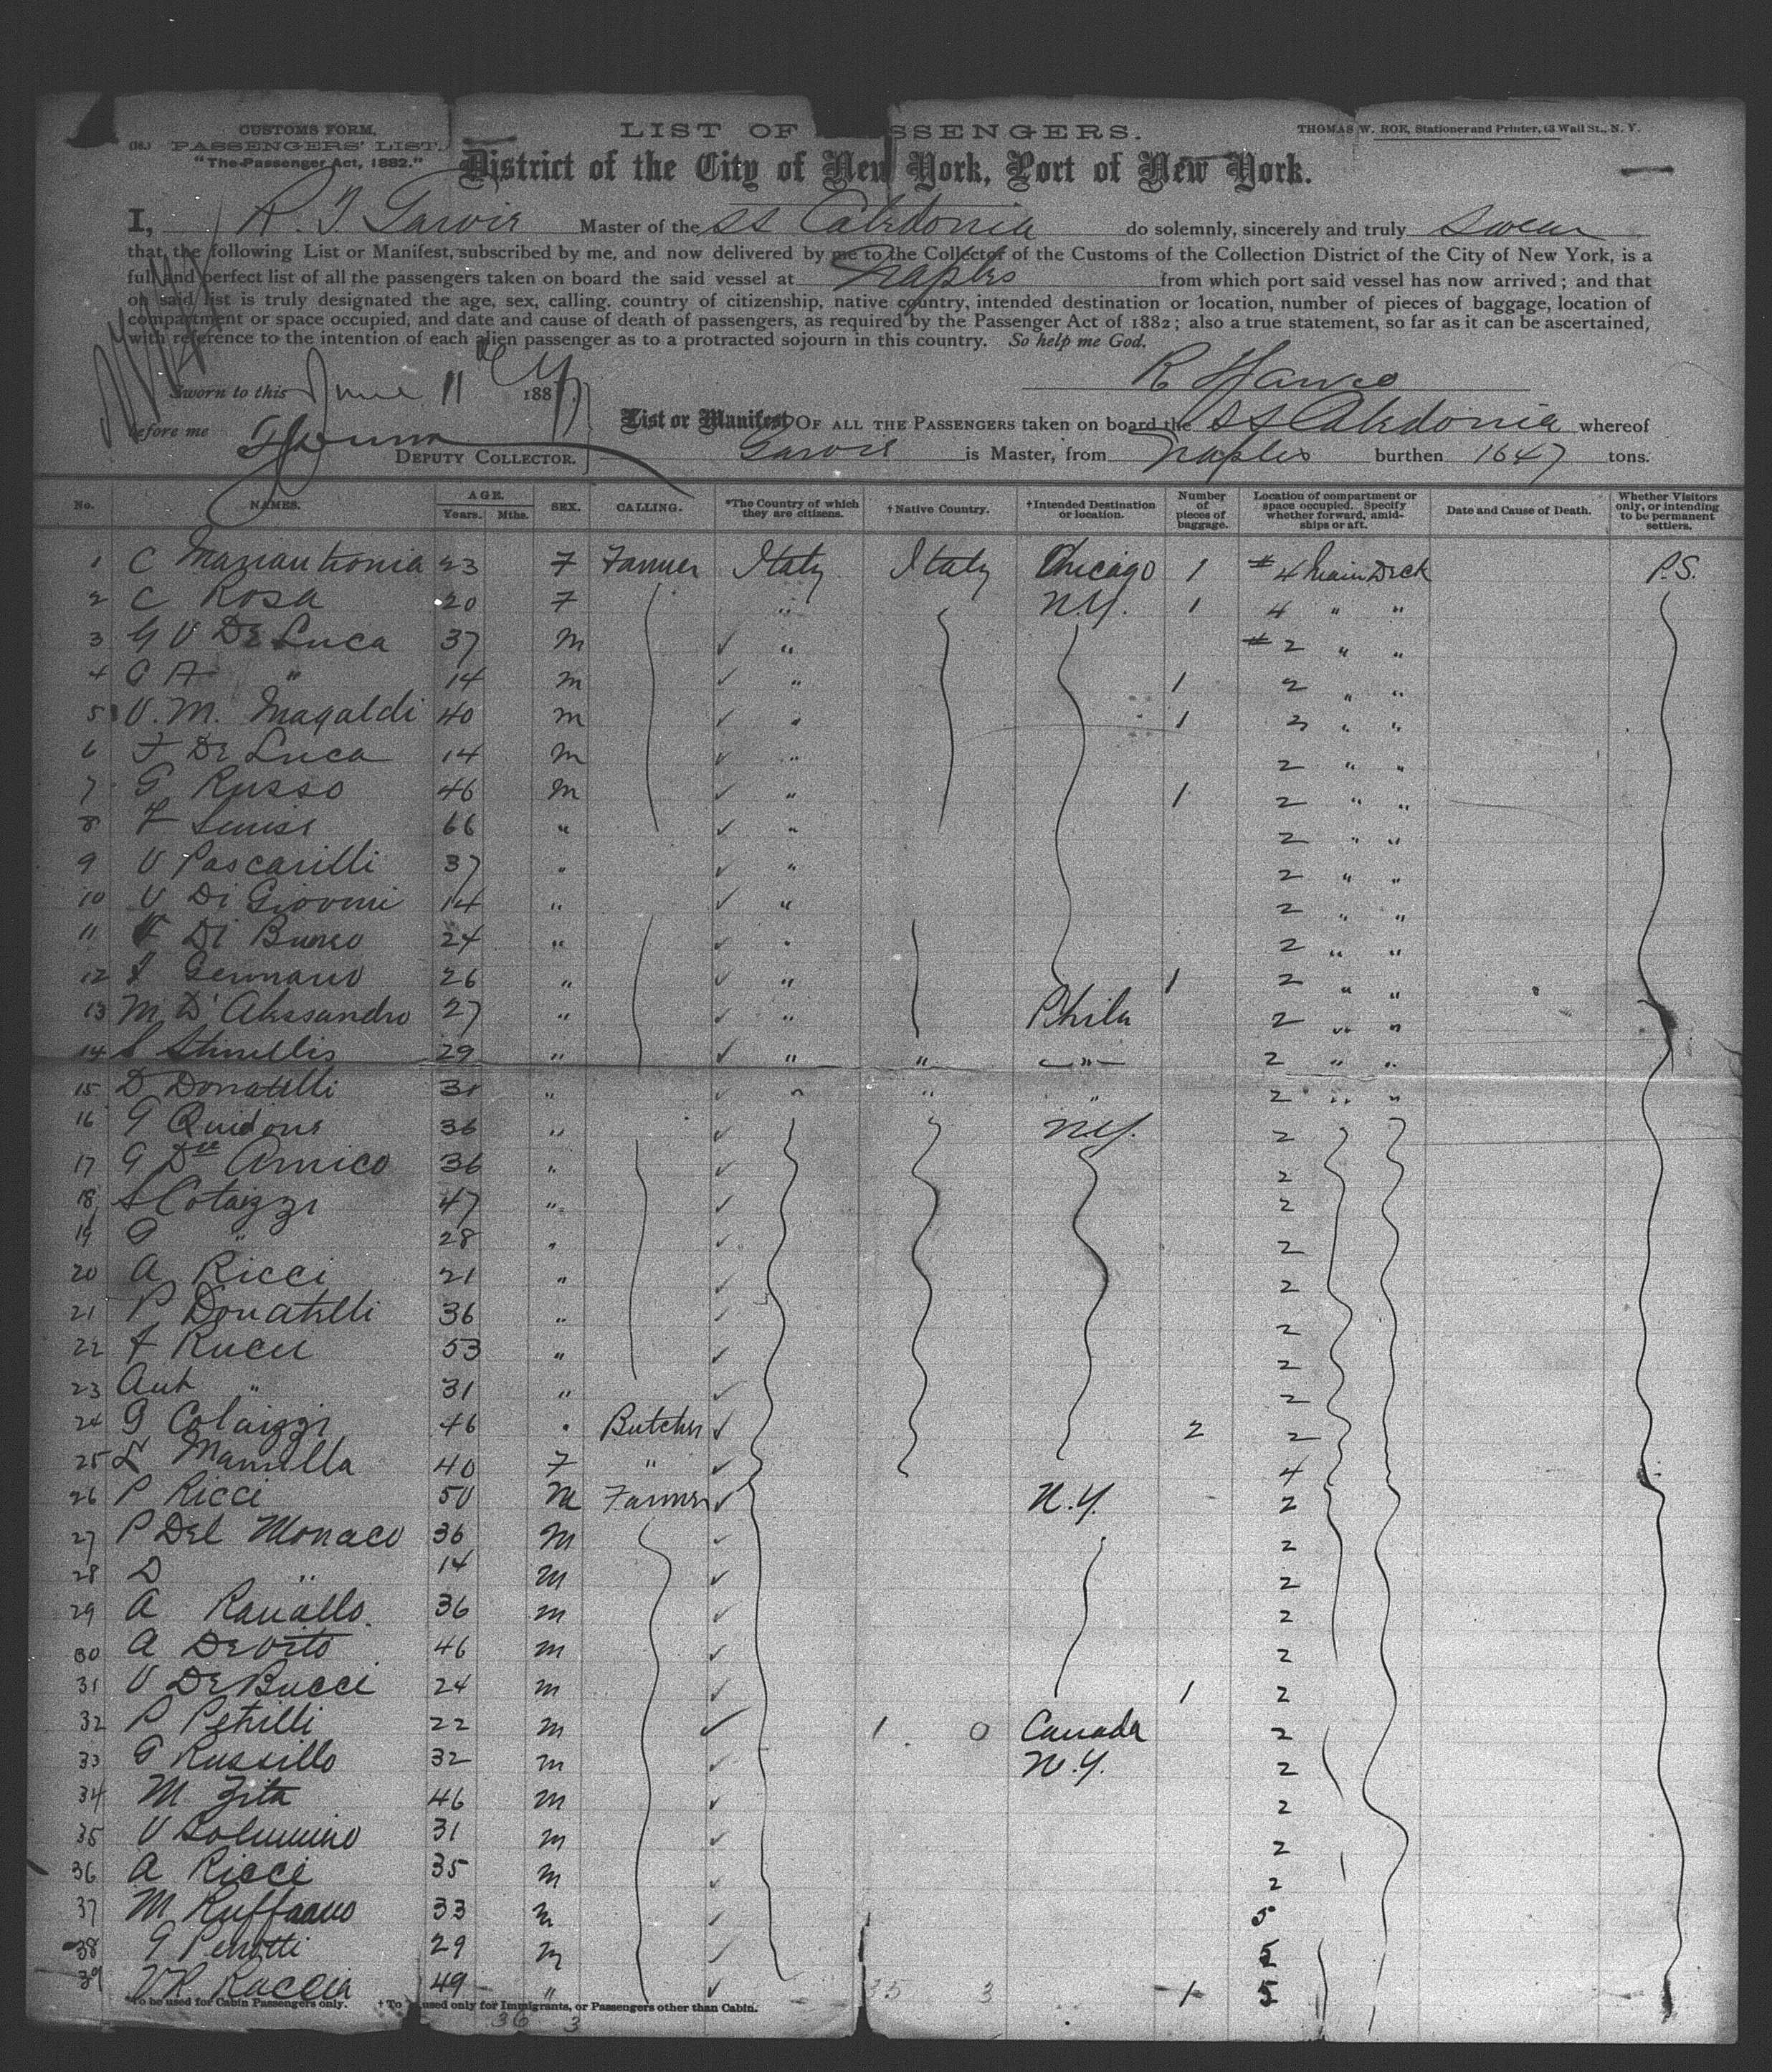 CUSTOMS FORM,
PASSENGERS' LIST.
"The Passenger Act, 1882."
LIST OF SSENGERS.
THOMAS W. ROE, Stationer and Printer, 63 Wall St., N. Y.
District of the City of New York, Port of New York.
I, Master of the SS Caledonia do solemnly, sincerely and truly swear
that, the following List or Manifest, subscribed by me, and now delivered by me to the Collector of the Customs of the Collection District of the City of New York, is a
full and perfect list of all the passengers taken on board the said vessel at Naples from which port said vessel has now arrived; and that
on said list is truly designated the age, sex, calling, country of citizenship, native country, intended destination or location, number of pieces of baggage, location of
compartment or space occupied, and date and cause of death of passengers, as required by the Passenger Act of 1882; also a true statement, so far as it can be ascertained,
with reference to the intention of each alien passenger as to a protracted sojourn in this country. So help me God,
Sworn to this June 11 188
before me
DEPUTY COLLECTOR.
List or Manifest OF ALL THE PASSENGERS taken on board the SS Caledonia whereof
is Master, from Naples burthen 1647 tons.
No. NAMES. AGE. Years. Mths. SEX. CALLING. *The Country of which they are citizens. †Native Country. †Intended Destination or location. Number of pieces of baggage. Location of compartment or space occupied. Specify whether forward, amidships or aft. Date and Cause of Death. Whether Visitors only, or intending to be permanent settlers.
1 C 23 F Farmer Italy Italy Chicago 1 #4 Main Deck P.S.
2 C Rosa 20 F " N.Y. 1 4 " "
3 G V De Luca 37 M " #2 " "
4 " 14 M " 1 2 " "
5 V. M. Magaldi 40 M " 1 2 " "
6 F De Luca 14 M " 2 " "
7 G Russo 46 M " 1 2 " "
8 F 66 " " 2 " "
9 V Pascarilli 37 " " 2 " "
10 V Di Giovoni 14 " " 2 " "
11 Di 24 " " 2 " "
12 Gennaro 26 " " 1 2 " "
13 M D'Alessandro 27 " " Phila 2 " "
14 29 " " " " 2 " "
15 D Donatelli 31 " " " " 2 " "
16 G 36 " N.Y. 2
17 G D Amico 36 " 2
18 Colaizzi 47 " 2
19 G " 28 " 2
20 A Ricci 21 " 2
21 P Donatelli 36 " 2
22 F Rucci 53 " 2
23 Ant " 31 " 2
24 G Colaizzi 46 " Butcher 2 2
25 40 F " 4
26 P Ricci 50 M Farmer N.Y. 2
27 P Del Monaco 36 M 2
28 D " 14 M 2
29 A Ranallo 36 M 2
30 A De Vito 46 M 2
31 V De Bucci 24 M 1 2
32 P Petrilli 22 M 1 0 Canada 2
33 G Russillo 32 M N.Y. 2
34 M Zita 46 M 2
35 V 31 M 2
36 A Ricci 35 M 2
37 M 33 M 5
38 G 29 M 5
39 49 " 35 3 1 5
*To be used for Cabin Passengers only. †To used only for Immigrants, or Passengers other than Cabin.
36 3